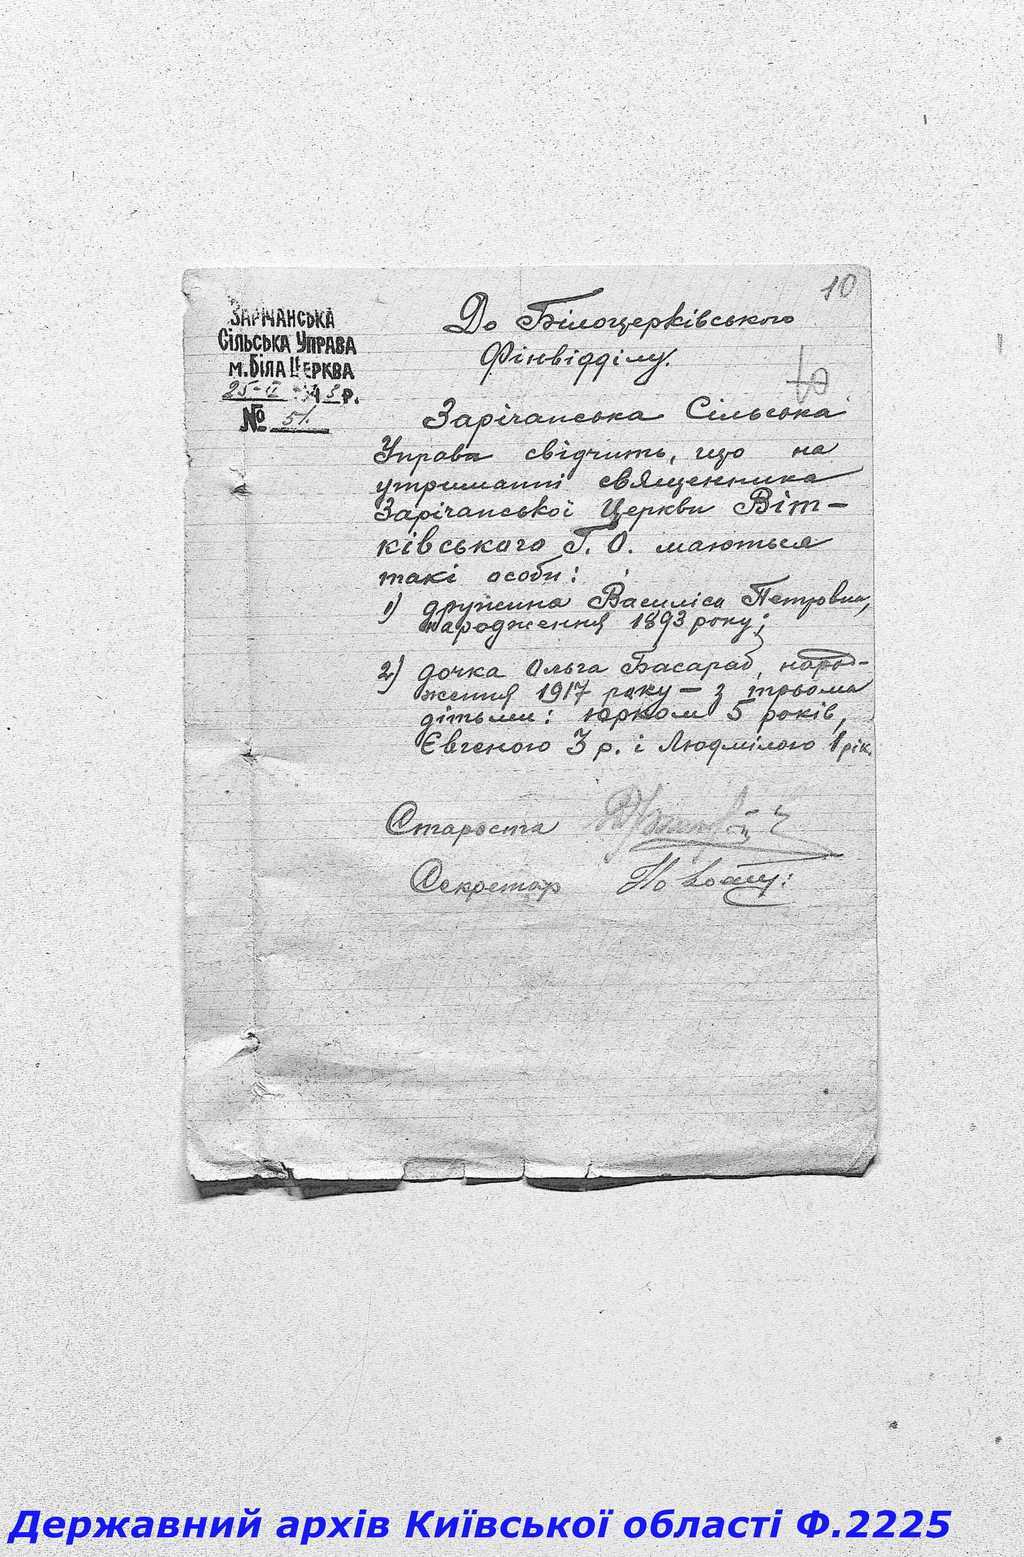 10
ЗАРІЧАНСЬКА
СІЛЬСЬКА УПРАВА
м. БІЛА ЦЕРКВА
25-II 1943 р.
№ 51
До Білоцерківського
Фінвідділу.
Зарічанська Сільська
Управа свідчить, що на
утриманні священника
Зарічанської Церкви Віт-
ківського Г. О. маються
такі особи:
1) дружина Василіса Петровна,
народження 1893 року;
2) дочка Ольга Басараб, народ-
ження 1917 року – з трьома
дітьми: Юрком 5 років,
Євгеною 3 р. і Людмілою 1 рік.
Староста
Секретар
Державний архів Київської області Ф.2225